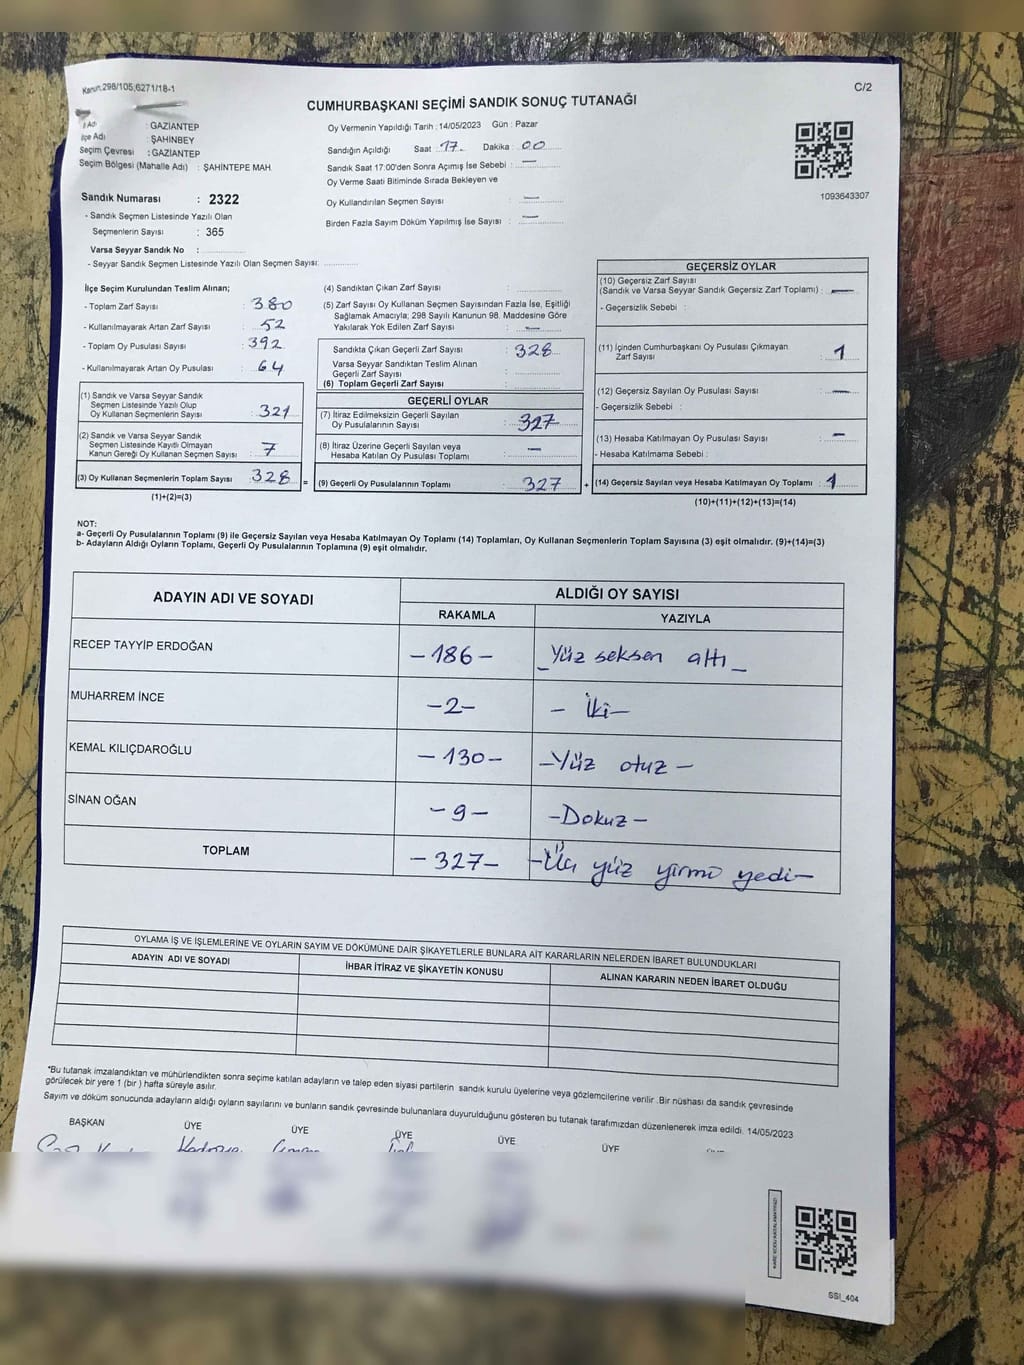 Kanun.298/105;6271/18-1
C/2
CUMHURBAŞKANI SEÇİMİ SANDIK SONUÇ TUTANAĞI
İl Adı : GAZİANTEP
İlçe Adı : ŞAHİNBEY
Seçim Çevresi : GAZİANTEP
Seçim Bölgesi (Mahalle Adı) : ŞAHİNTEPE MAH.
Sandık Numarası : 2322
- Sandık Seçmen Listesinde Yazılı Olan
Seçmenlerin Sayısı : 365
Varsa Seyyar Sandık No :
- Seyyar Sandık Seçmen Listesinde Yazılı Olan Seçmen Sayısı:
Oy Vermenin Yapıldığı Tarih : 14/05/2023 Gün : Pazar
Sandığın Açıldığı Saat : 17 Dakika : 00
Sandık Saat 17:00'den Sonra Açımış İse Sebebi : —
Oy Verme Saati Bitiminde Sırada Bekleyen ve
Oy Kullandırılan Seçmen Sayısı : —
Birden Fazla Sayım Döküm Yapılmış İse Sayısı : —
1093643307
İlçe Seçim Kurulundan Teslim Alınan;
- Toplam Zarf Sayısı : 380
- Kullanılmayarak Artan Zarf Sayısı : 52
- Toplam Oy Pusulası Sayısı : 392
- Kullanılmayarak Artan Oy Pusulası : 64
(1) Sandık ve Varsa Seyyar Sandık
Seçmen Listesinde Yazılı Olup
Oy Kullanan Seçmenlerin Sayısı : 321
(2) Sandık ve Varsa Seyyar Sandık
Seçmen Listesinde Kayıtlı Olmayan
Kanun Gereği Oy Kullanan Seçmen Sayısı : 7
(3) Oy Kullanan Seçmenlerin Toplam Sayısı : 328 =
(1)+(2)=(3)
(4) Sandıktan Çıkan Zarf Sayısı :
(5) Zarf Sayısı Oy Kullanan Seçmen Sayısından Fazla İse, Eşitliği
Sağlamak Amacıyla; 298 Sayılı Kanunun 98. Maddesine Göre
Yakılarak Yok Edilen Zarf Sayısı : —
Sandıkta Çıkan Geçerli Zarf Sayısı : 328
Varsa Seyyar Sandıktan Teslim Alınan
Geçerli Zarf Sayısı :
(6) Toplam Geçerli Zarf Sayısı :
GEÇERLİ OYLAR
(7) İtiraz Edilmeksizin Geçerli Sayılan
Oy Pusulalarının Sayısı : 327
(8) İtiraz Üzerine Geçerli Sayılan veya
Hesaba Katılan Oy Pusulası Toplamı : —
(9) Geçerli Oy Pusulalarının Toplamı : 327 +
GEÇERSİZ OYLAR
(10) Geçersiz Zarf Sayısı
(Sandık ve Varsa Seyyar Sandık Geçersiz Zarf Toplamı) : —
- Geçersizlik Sebebi :
(11) İçinden Cumhurbaşkanı Oy Pusulası Çıkmayan
Zarf Sayısı : 1
(12) Geçersiz Sayılan Oy Pusulası Sayısı : —
- Geçersizlik Sebebi :
(13) Hesaba Katılmayan Oy Pusulası Sayısı : —
- Hesaba Katılmama Sebebi :
(14) Geçersiz Sayılan veya Hesaba Katılmayan Oy Toplamı : 1
(10)+(11)+(12)+(13)=(14)
NOT:
a- Geçerli Oy Pusulalarının Toplamı (9) ile Geçersiz Sayılan veya Hesaba Katılmayan Oy Toplamı (14) Toplamları, Oy Kullanan Seçmenlerin Toplam Sayısına (3) eşit olmalıdır. (9)+(14)=(3)
b- Adayların Aldığı Oyların Toplamı, Geçerli Oy Pusulalarının Toplamına (9) eşit olmalıdır.
ADAYIN ADI VE SOYADI ALDIĞI OY SAYISI
RAKAMLA YAZIYLA
RECEP TAYYİP ERDOĞAN -186- -Yüz seksen altı-
MUHARREM İNCE -2- -İki-
KEMAL KILIÇDAROĞLU -130- -Yüz otuz-
SİNAN OĞAN -9- -Dokuz-
TOPLAM -327- -Üç yüz yirmi yedi-
OYLAMA İŞ VE İŞLEMLERİNE VE OYLARIN SAYIM VE DÖKÜMÜNE DAİR ŞİKAYETLERLE BUNLARA AİT KARARLARIN NELERDEN İBARET BULUNDUKLARI
ADAYIN ADI VE SOYADI İHBAR İTİRAZ VE ŞİKAYETİN KONUSU ALINAN KARARIN NEDEN İBARET OLDUĞU
*Bu tutanak imzalandıktan ve mühürlendikten sonra seçime katılan adayların ve talep eden siyasi partilerin sandık kurulu üyelerine veya gözlemcilerine verilir .Bir nüshası da sandık çevresinde
görülecek bir yere 1 (bir ) hafta süreyle asılır.
Sayım ve döküm sonucunda adayların aldığı oyların sayılarını ve bunların sandık çevresinde bulunanlara duyurulduğunu gösteren bu tutanak tarafımızdan düzenlenerek imza edildi. 14/05/2023
BAŞKAN ÜYE ÜYE ÜYE ÜYE ÜYE
SSI_404